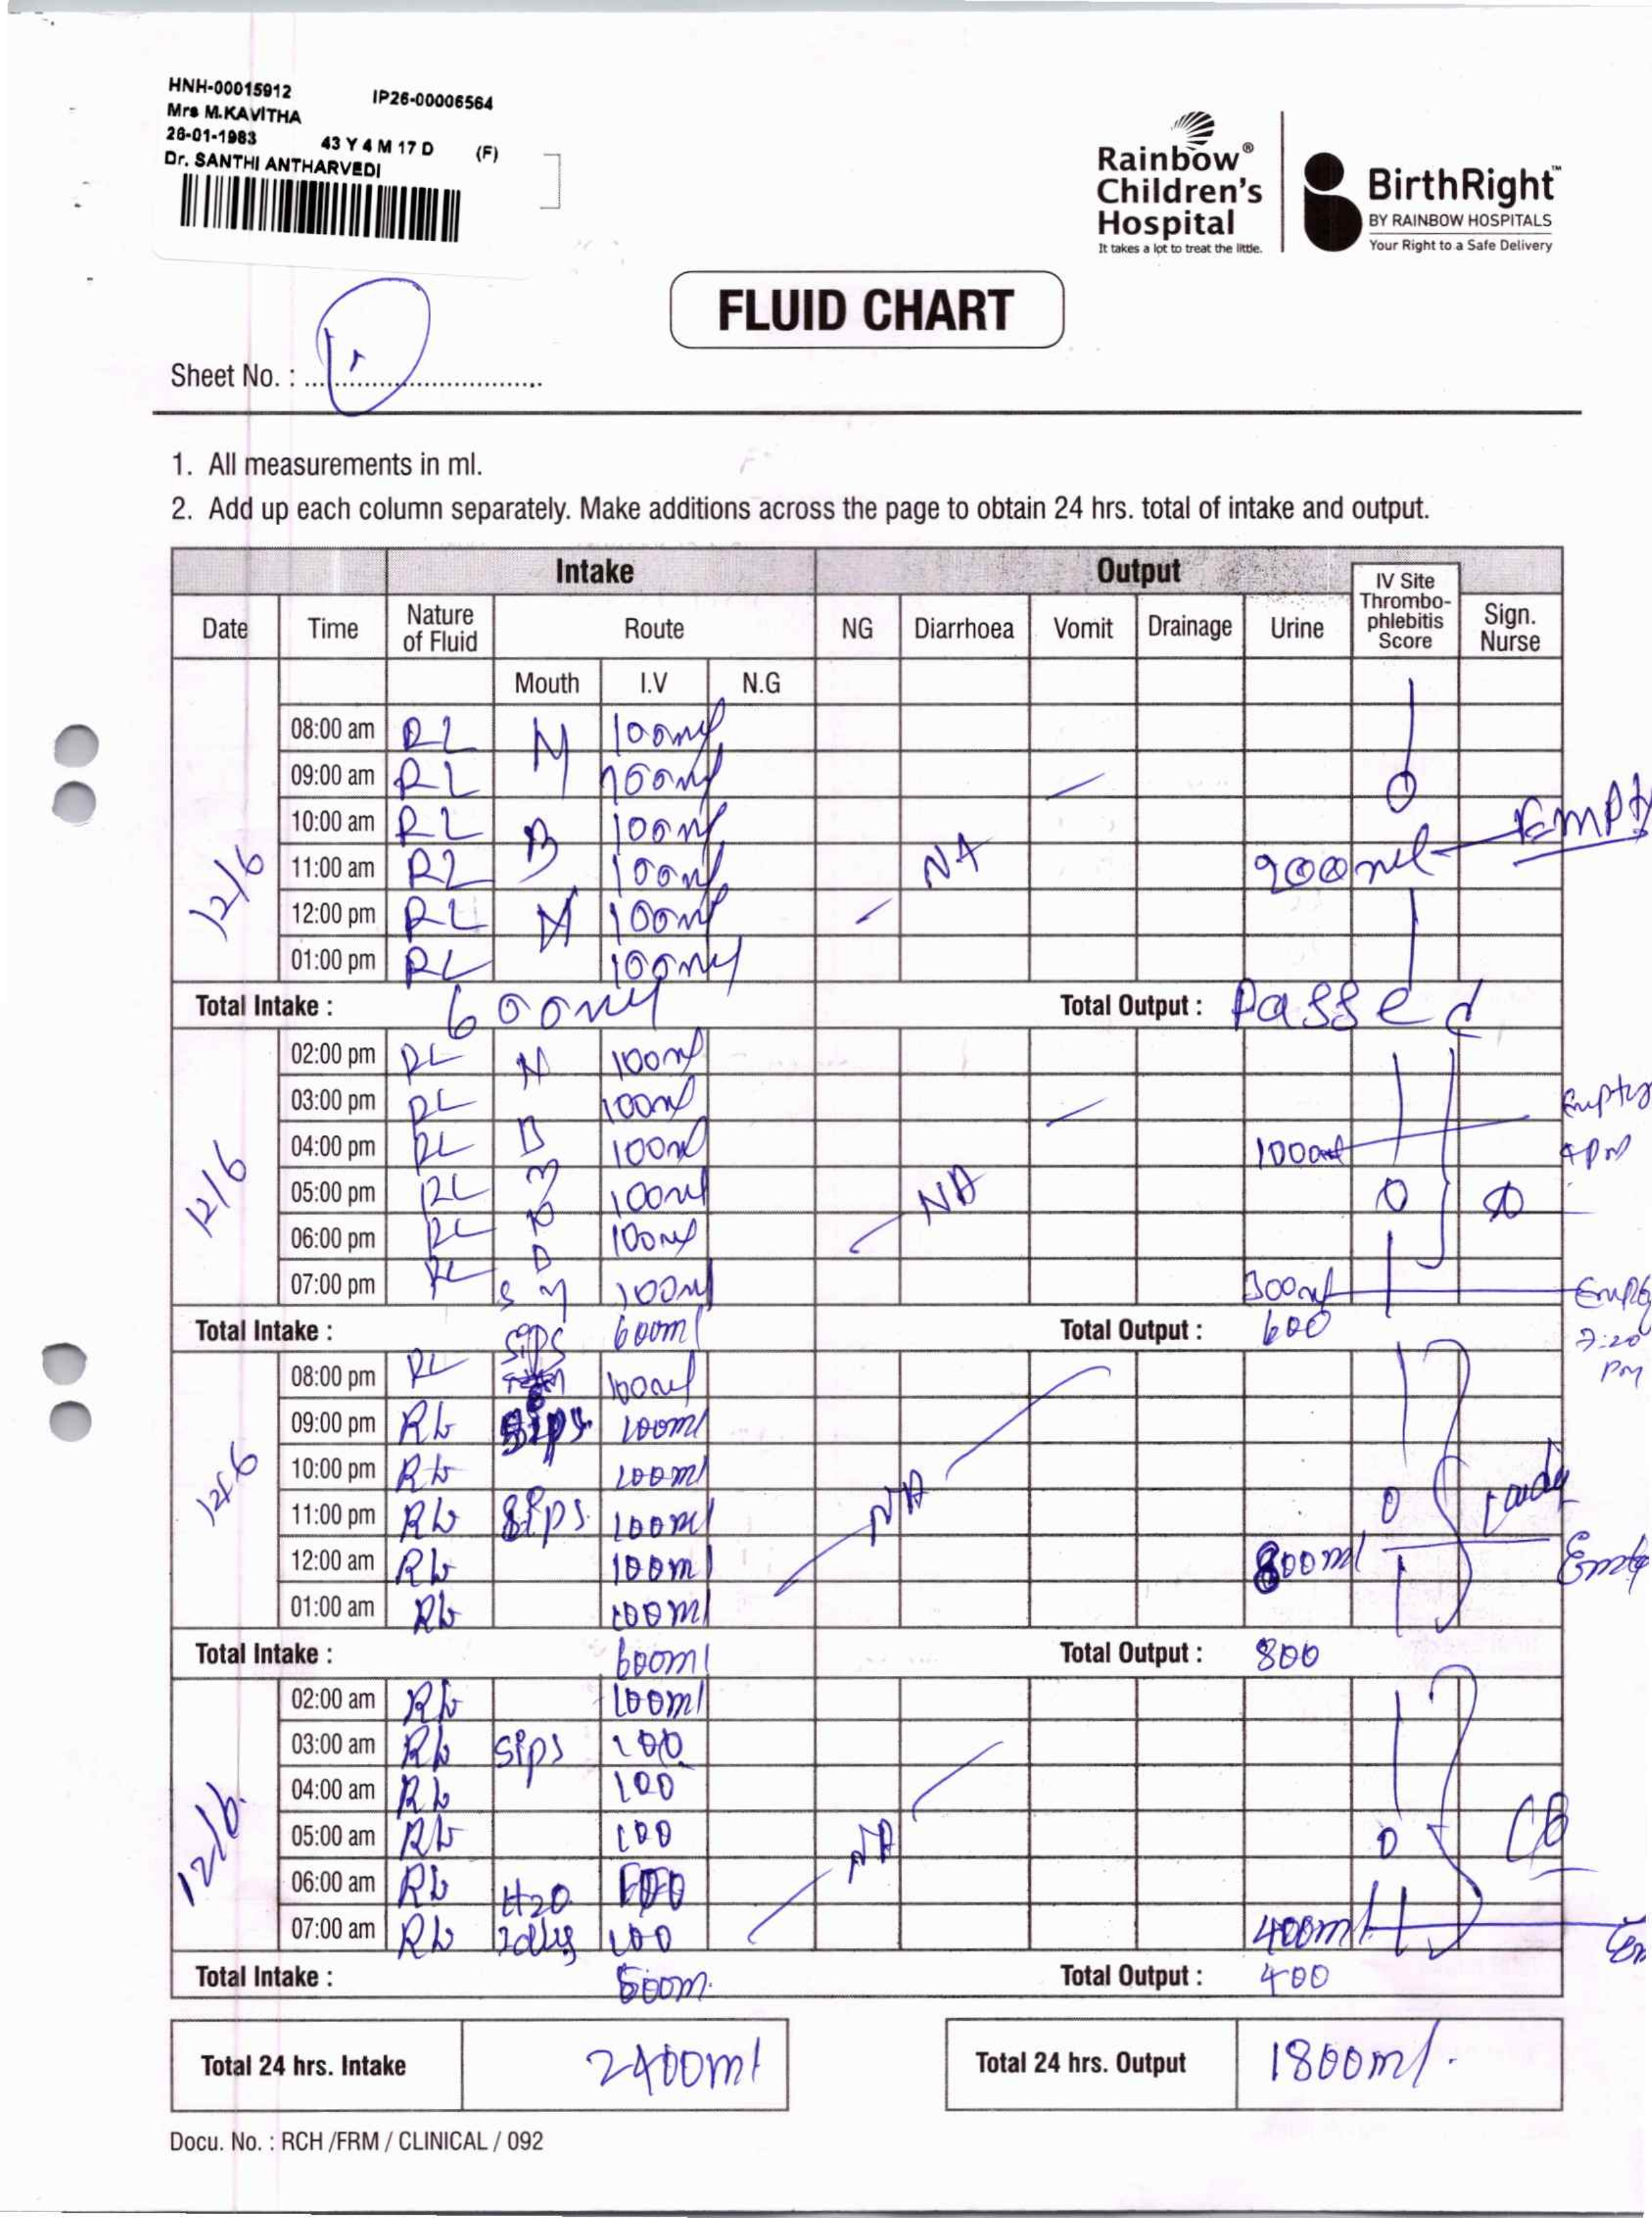 HNH-00015912 IP26-00006564
Mrs M.KAVITHA
26-01-1983 43 Y 4 M 17 D (F)
Dr. SANTHI ANTHARVEDI
Rainbow®
Children's
Hospital
It takes a lot to treat the little.
BirthRight™
BY RAINBOW HOSPITALS
Your Right to a Safe Delivery
FLUID CHART
Sheet No. :
1. All measurements in ml.
2. Add up each column separately. Make additions across the page to obtain 24 hrs. total of intake and output.
Intake Output
Date Time Nature of Fluid Route NG Diarrhoea Vomit Drainage Urine IV Site Thrombo-phlebitis Score Sign. Nurse
Mouth I.V N.G
12/6
08:00 am RL N 100ml
09:00 am RL 100ml 0
10:00 am RL B 100ml
11:00 am RL 100ml NA 900ml Empty
12:00 pm RL M 100ml
01:00 pm RL 100ml
Total Intake : 600ml Total Output : Passed
12/6
02:00 pm RL N 100ml
03:00 pm RL 100ml Empty
04:00 pm RL B 100ml 4pm
05:00 pm RL M 100ml NA 0
06:00 pm RL N 100ml
07:00 pm RL B M 100ml 300ml
Total Intake : sips 600ml Total Output : 600 7:20 pm
12/6
08:00 pm RL 100ml
09:00 pm RL sips 100ml
10:00 pm RL 100ml
11:00 pm RL sips 100ml NA 0
12:00 am RL 100ml 800ml
01:00 am RL 100ml
Total Intake : 600ml Total Output : 800
12/6
02:00 am RL 100ml
03:00 am RL sips 100
04:00 am RL 100
05:00 am RL 100 NA 0 CB
06:00 am RL H2O 100
07:00 am RL Idly 100 400ml
Total Intake : 600m Total Output : 400
Total 24 hrs. Intake 2400ml Total 24 hrs. Output 1800ml.
Docu. No. : RCH /FRM / CLINICAL / 092